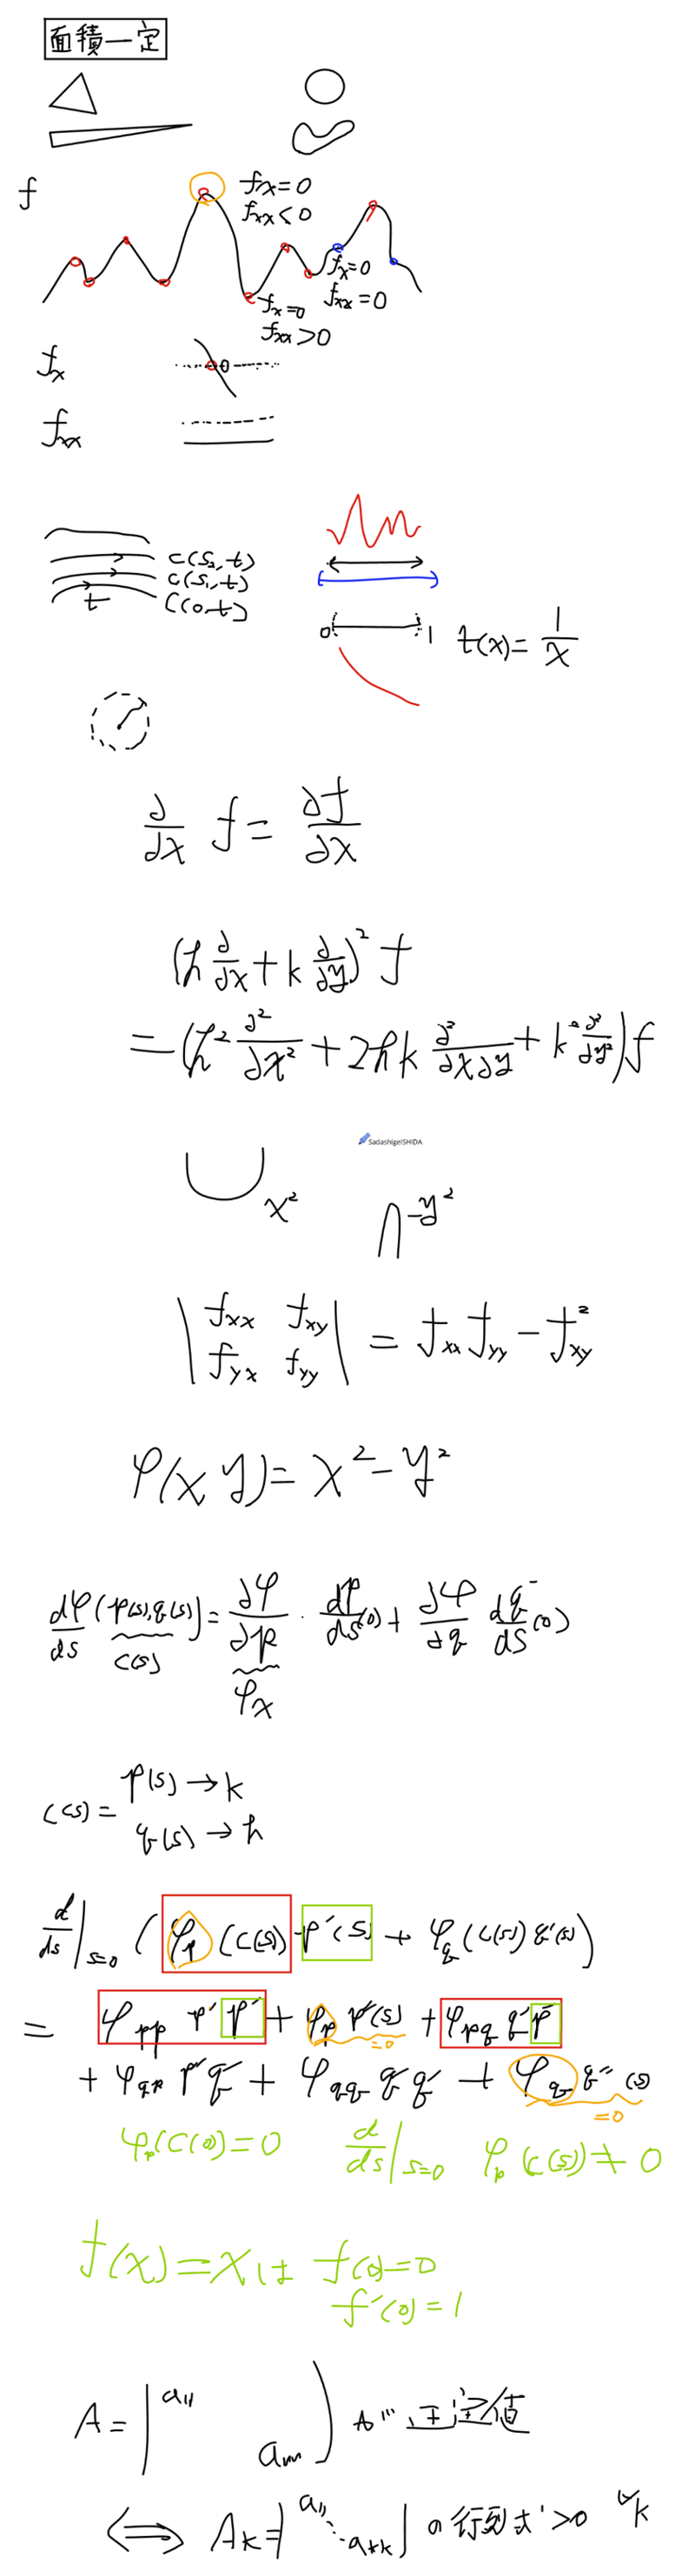 面積一定
f
fx=0
fxx<0
fx=0
fxx=0
fx=0
fxx>0
fx
0
fxx
c(s₂,t)
c(s₁,t)
t
c(0,t)
0 1
t(x)=1/x
∂/∂x f = ∂f/∂x
(h ∂/∂x + k ∂/∂y)² f
= (h² ∂²/∂x² + 2hk ∂²/∂x∂y + k² ∂²/∂y²) f
SadashigeISHIDA
x²
-y²
| fxx fxy |
| fyx fyy | = fxx fyy - f²xy
φ(x y) = x² - y²
dφ/ds (p(s), q(s)) = ∂φ/∂p · dp/ds(0) + ∂φ/∂q dq/ds(0)
c(s)
φx
c(s) = p(s) → k
q(s) → h
d/ds|s=0 (φp(c(s)) p'(s) + φq(c(s)) q'(s))
= φpp p' p' + φp p''(s) + φpq q' p'
=0
+ φqp p' q' + φqq q' q' + φq q''(s)
=0
φp(c(0))=0 d/ds|s=0 φp(c(s)) ≠ 0
f(x)=x は f(0)=0
f'(0)=1
A = ( a11 ann ) が 正定値
⟺ Ak = | a11 ⋱ akk | の行列式 >0 ∀k